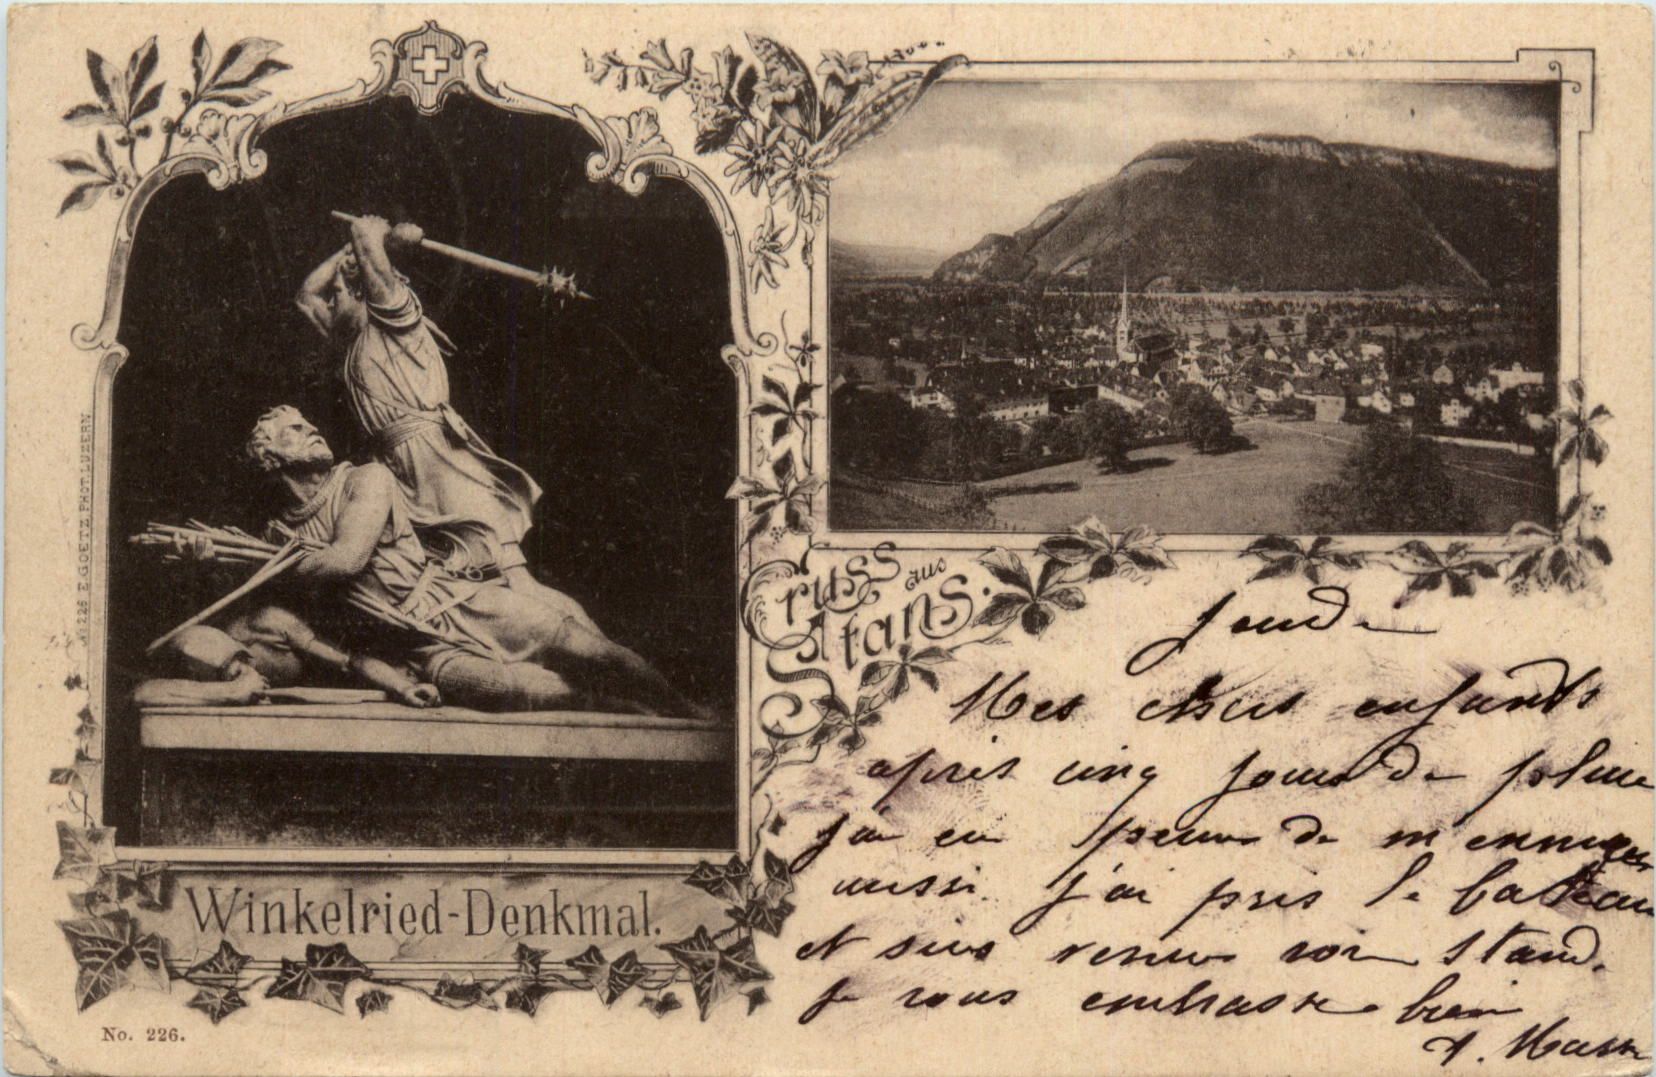 No. 226 E. GOETZ, PHOT. LUZERN
Gruss aus
Stans.
Winkelried-Denkmal.
No. 226.
Jeudi
Mes chers enfants
après cinq jours de pluie
j'ai eu peur de m'ennuyer
aussi j'ai pris le bateau
et suis venu voir Stand.
Je vous embrasse bien